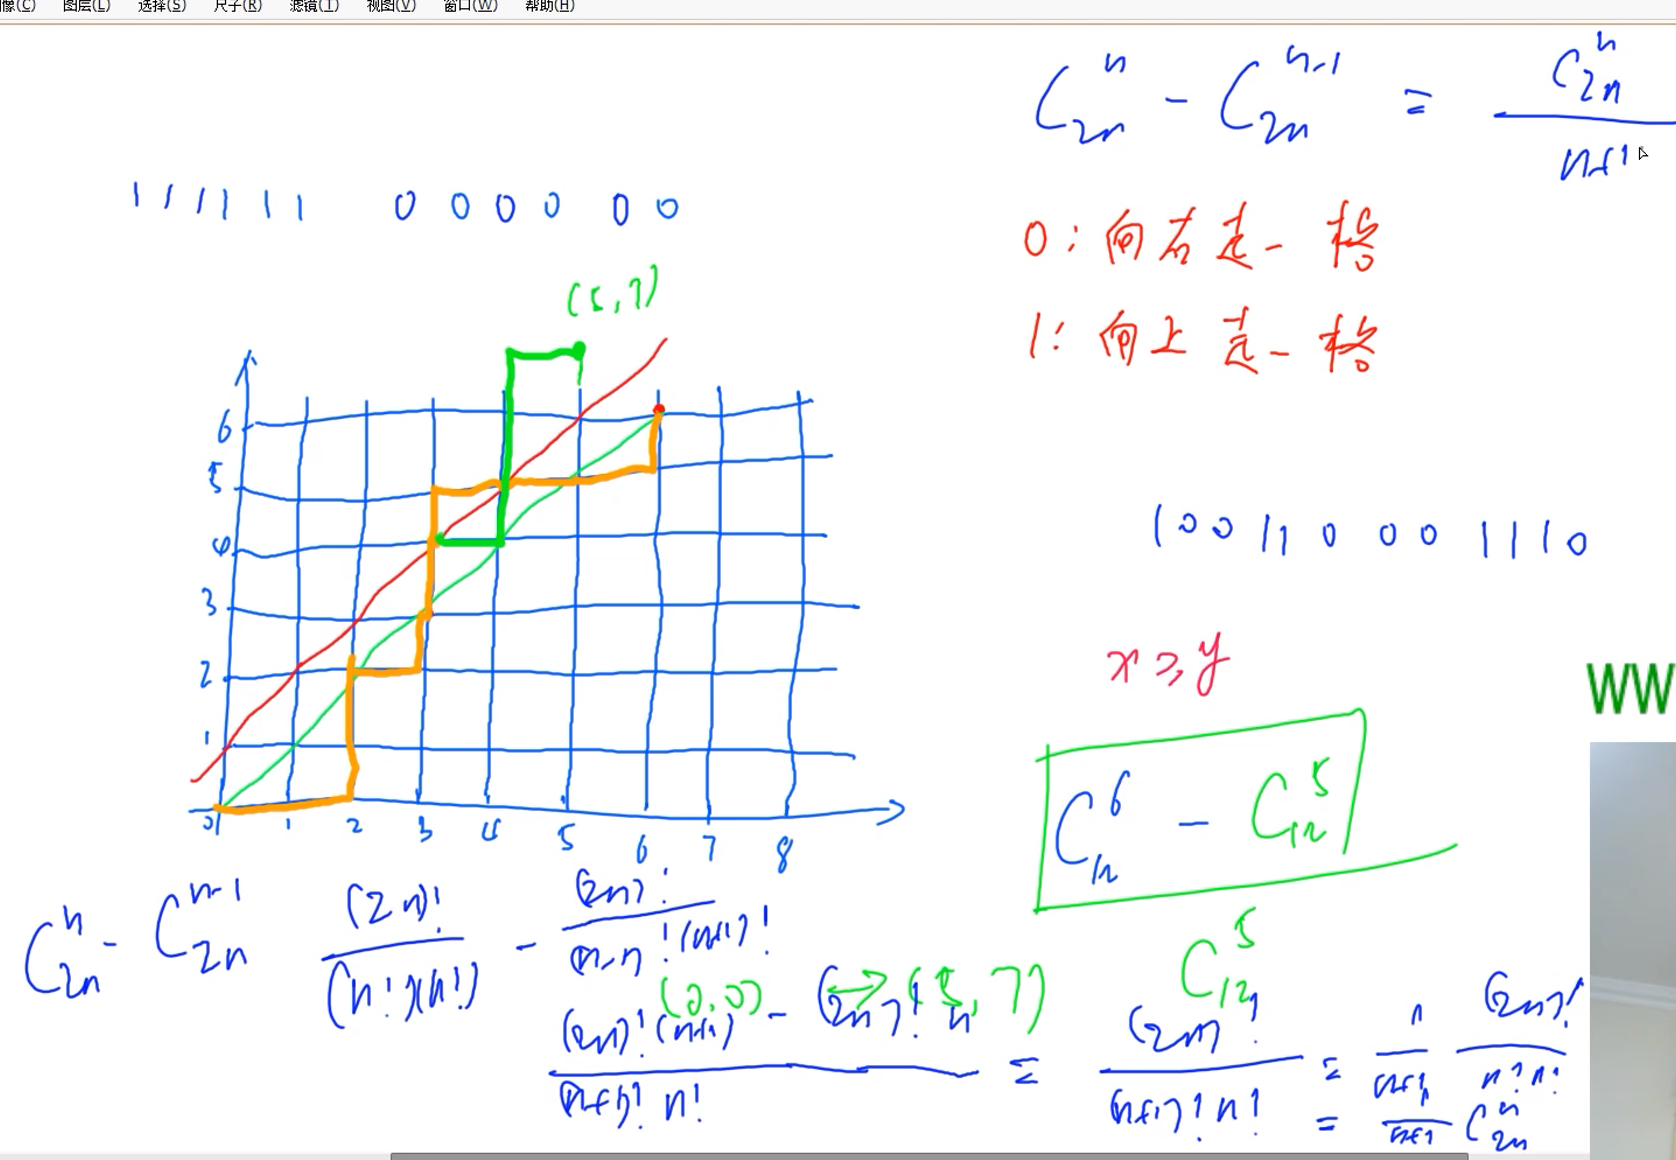 像(C) 图层(L) 选择(S) 尺子(R) 滤镜(T) 视图(V) 窗口(W) 帮助(H)
C_{2n}^{n} - C_{2n}^{n-1} = \frac{C_{2n}^{n}}{n+1}
1 1 1 1 1 1 0 0 0 0 0 0
0: 向右走一格
1: 向上走一格
(5,7)
6
5
4
3
2
1
0 1 2 3 4 5 6 7 8
1 0 0 1 1 0 0 0 1 1 1 0
x ≥ y
WW
C_{12}^{6} - C_{12}^{5}
C_{12}^{5}
(0,0) → (5,7)
C_{2n}^{n} - C_{2n}^{n-1} \frac{(2n)!}{(n!)(n!)} - \frac{(2n)!}{(n-1)!(n+1)!}
\frac{(2n)!(n+1) - (2n)! n}{(n+1)! n!} = \frac{(2n)!}{(n+1)! n!} = \frac{1}{n+1} \frac{(2n)!}{n! n!}
= \frac{1}{n+1} C_{2n}^{n}